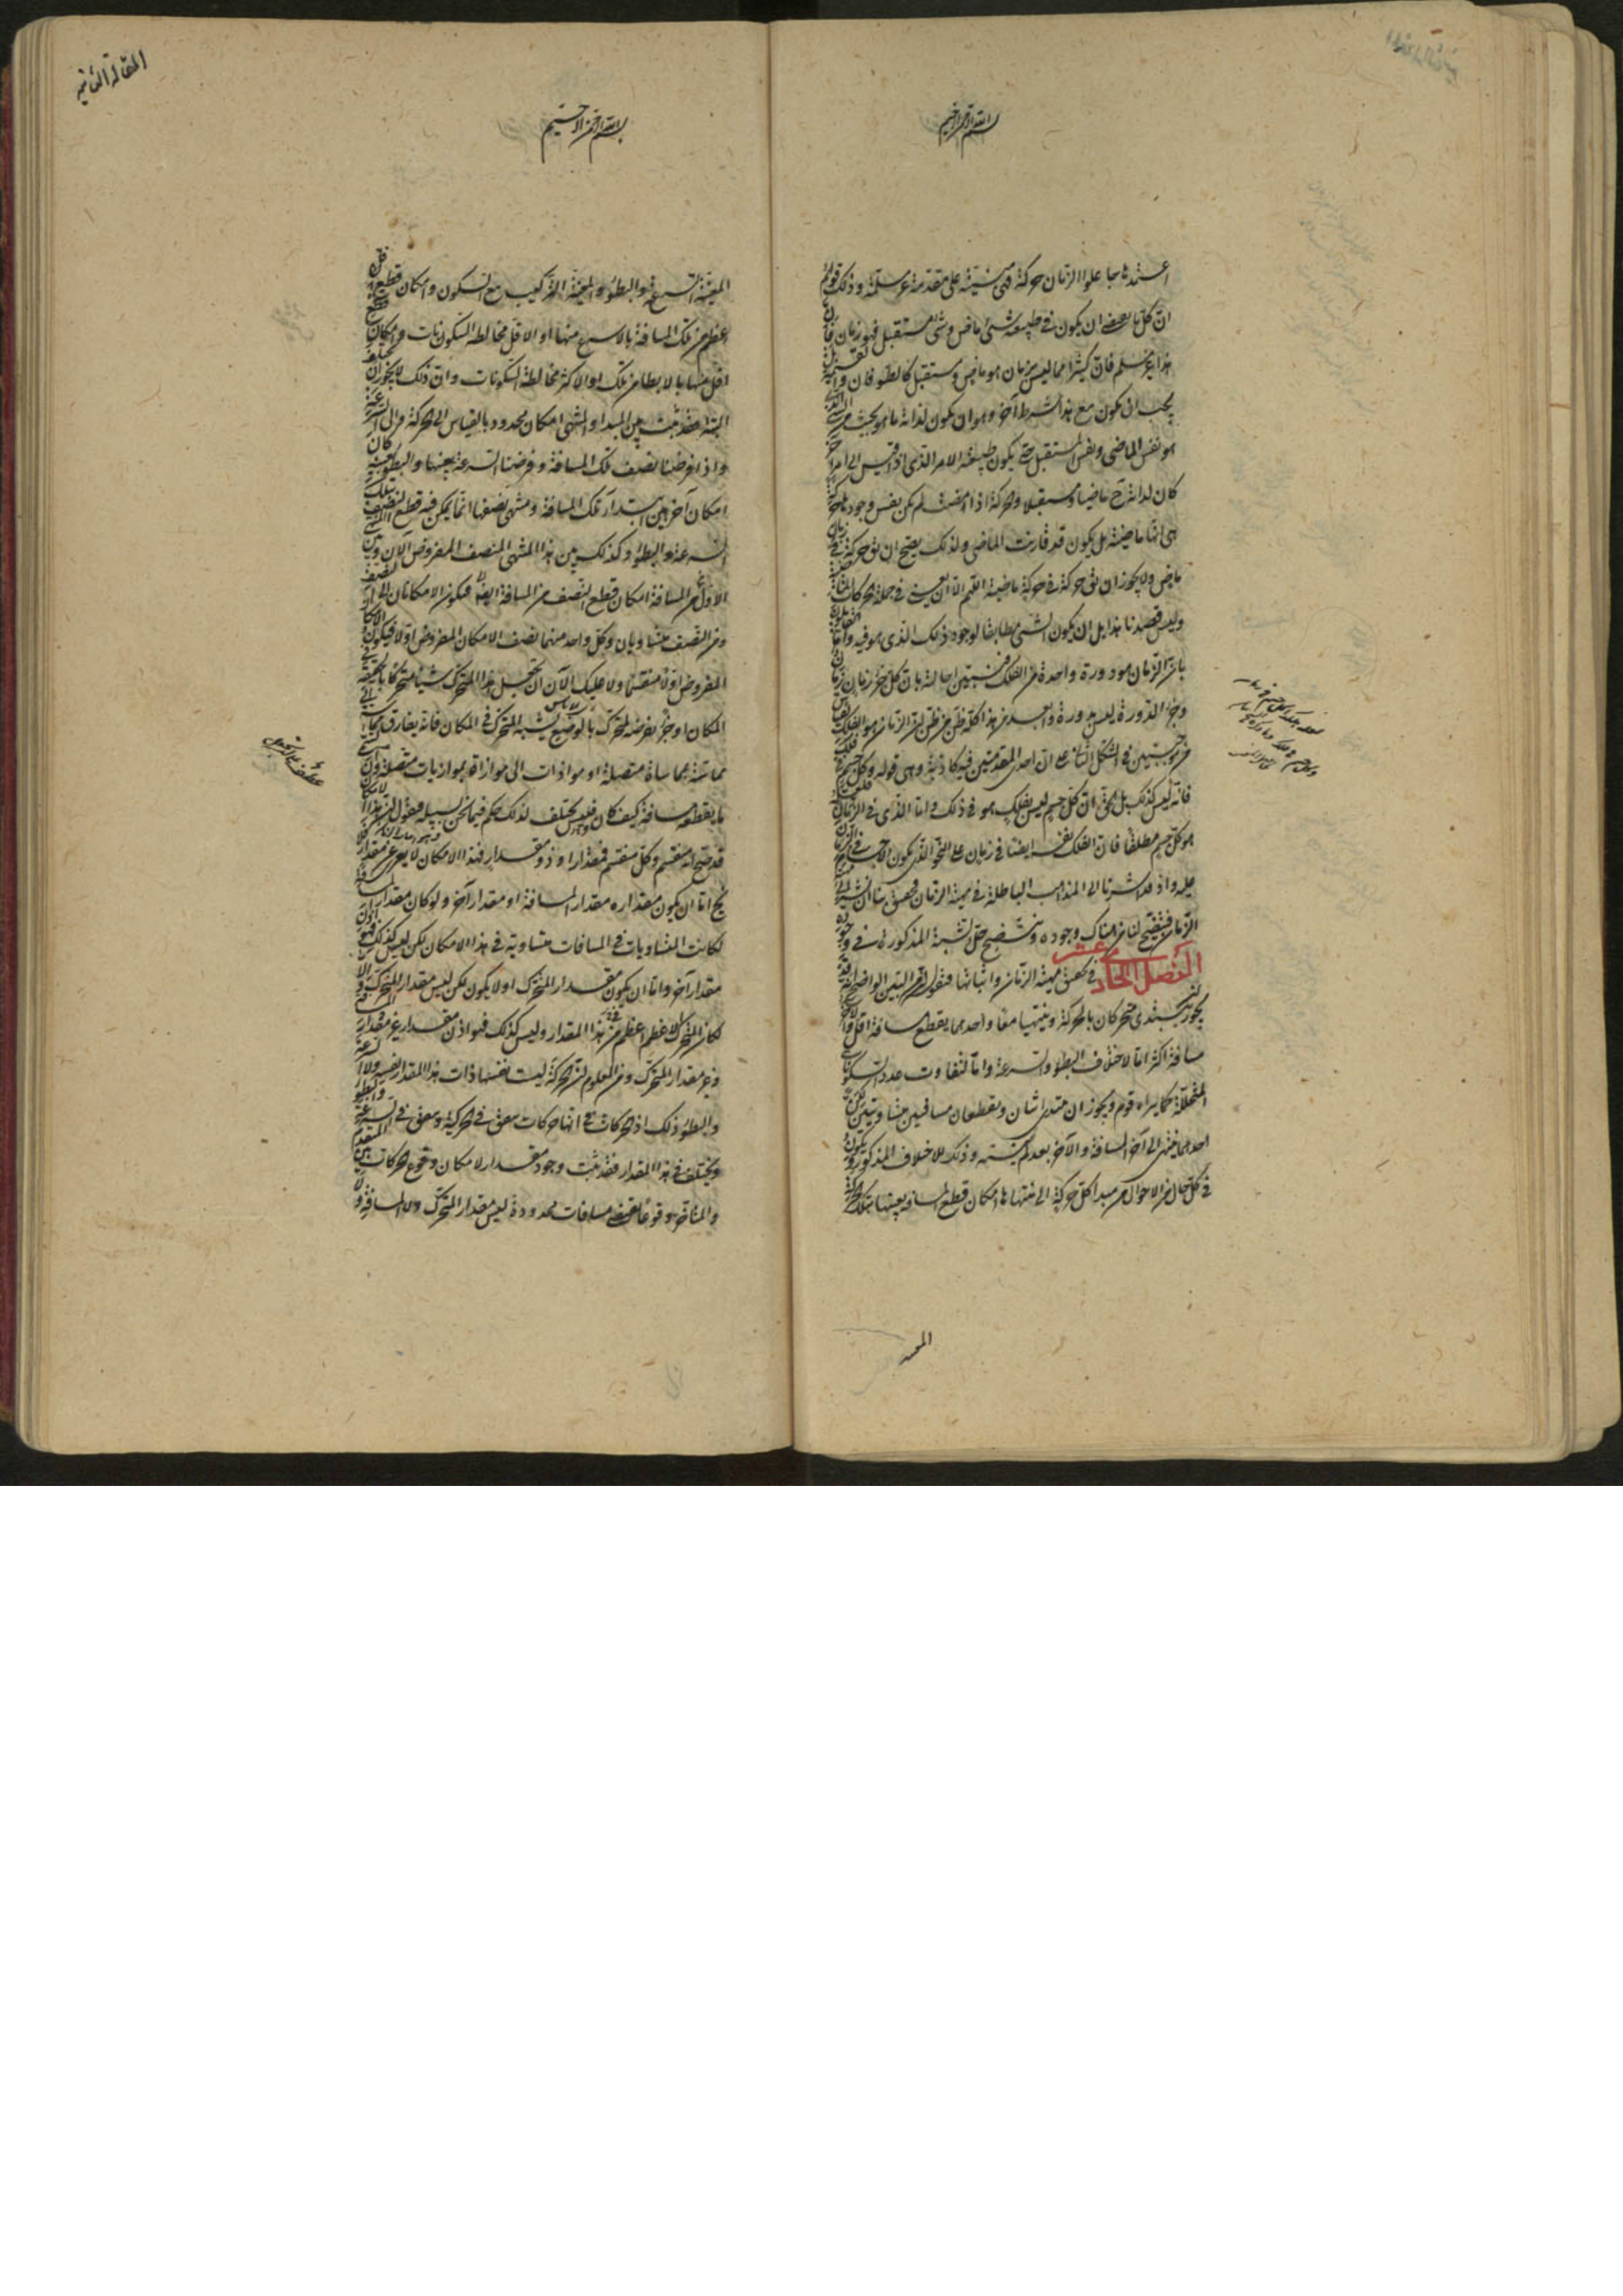 بسم الله الرحمن الرحيم
اعتمدها جاعلوا الزمان حركة فهى مبنية على مقدمة غير مسلمة وذلك قولهم
ان كل ما يصح ان يكون فى طبيعته شئ ماض وشئ مستقبل فهو زمان فان
هذا غير مسلم فان كثيرا مما ليس بزمان هو ماض ومستقبل كالطوفان والقيمة
يجب ان يكون مع هذا شرط آخر وهو ان يكون لذاته ما هو بحيث منه الشئ الذى
هو نفس الماضى ونفس المستقبل حتى يكون طبيعته الامر الذى اذا قيس الى امر آخر
كان لذاته ماضيا ومستقبلا والحركة اذا مضت لم يكن نفس وجودها حركة
هى انها ماضية بل يكون قد قارنت الماضى ولذلك يصح ان يق حركة فى زمان
ماض ولا يجوز ان يق حركة فى حركة ماضية اللهم الا ان يعنى فى جملة الحركات الماضية
وليس قصدنا هذا بل ان يكون الشئ مطابقا لوجود ذلك الذى هو فيه واما القائلون
بان الزمان هو دورة واحدة من الفلك فتبين احالته بان كل جزء زمان زمان
وجزء الدورة ليس بدورة وابعد من هذا كله ظن من ظن ان الزمان هو الفلك بقياس
من موجبتين فى الشكل الثانى على ان احدى المقدمتين فيه كاذبة وهى قوله وكل جسم فى فلك
فانه ليس كذلك بل الحق ان كل جسم ليس بفلك هو فى ذلك واما الذى فى الزمان
هو كل جسم مطلقا فان الفلك نفسه ايضا فى زمان على النحو الذى يكون الاجسام فى الزمان
عليه واذ قد اشرنا الى المذاهب الباطلة فى مهية الزمان فحقيق بنا ان نشير الى
الزمان فيتضح لنا من هناك وجوده ويتضح حل الشبه المذكورة فى وجوده
الفصل الحادى عشر فى تحقيق مهية الزمان واثباتها فنقول ان من البين الواضح انه قد
يجوز ان يبتدى متحركان بالحركة وينتهيا معا واحدهما يقطع مسافة اقل والاخر
مسافة اكثر اما لاختلاف البطؤ والسرعة واما لتفاوت عدد السكونات
المتخللة كما يراه قوم ويجوز ان يبتدى اثنان ويقطعان مسافتين متساويتين لكن
احدهما ينتهى الى آخر المسافة والآخر بعد لم ينته وذلك للاختلاف المذكور ويكون
فى كل حال من الاحوال من مبدا كل حركة الى منتهاها امكان قطع المسافة بعينها بتلك الحركة
المعينة
المقالة الثانية
بسم الله الرحمن الرحيم
المعينة السرعة والبطؤ والمعينة التركيب مع السكون وامكان قطع
اعظم من تلك المسافة بالاسرع منها او الاقل مخالطة السكونات وامكان
اقل منها بالابطا من تلك او الاكثر مخالطة السكونات وان ذلك لا يجوز ان يختلف
البتة فقد ثبت بين المبدا والمنتهى امكان محدود بالقياس الى الحركة والى السرعة
واذا فرضنا نصف تلك المسافة وفرضنا السرعة بعينها والبطؤ بعينه كان
امكان آخر بين ابتداء تلك المسافة ومنتهى نصفها انما يمكن فيه قطع النصف بتلك
السرعة والبطؤ وكذلك بين هذا المنتهى المنصف المفروض الآن وبين المنتهى
الاول من المسافة امكان قطع النصف من المسافة ايضا فيكون الامكانان الى النصف
ومن النصف متساويان وكل واحد منهما نصف الامكان المفروض اولا فيكون الامكان
المفروض اولا منقسما ولا عليك الآن ان تجعل هذا المتحرك شيئا متحركا بالحقيقة فى
المكان او جزءا نفرضه لمتحرك بالوضع يشبه المتحرك فى المكان فانه يفارق
مماسة بمماسة متصلة او موازاة الى موازاة بموازيات متصلة وان يسمى
ما يقطعه مسافة كيف كان فليس يختلف لذلك حكم فيما نحن بسبيله فنقول ان هذا الامكان
قد صح انه منقسم وكل منقسم فمقدار او ذو مقدار فهذا الامكان لا يعرى عن مقدار فلا
يخ اما ان يكون مقداره مقدار المسافة او مقدار آخر ولو كان مقدار المسافة
لكانت المتساويات فى المسافات متساوية فى هذا الامكان لكن ليس كذلك فهو اذن
مقدار آخر واما ان يكون مقدار المتحرك او لا يكون لكن ليس مقدار المتحرك والا
لكان المتحرك الاعظم اعظم فى هذا المقدار وليس كذلك فهو اذن مقدار غير مقدار المسافة
وغير مقدار المتحرك ومن المعلوم ان الحركة ليست نفسها ذات هذا المقدار نفسه ولا السرعة
والبطؤ ذلك اذ الحركات فى انها حركات يتفق فى الحركية ويتفق فى السرعة والبطؤ
ويختلف فى هذا المقدار فقد ثبت وجود مقدار لامكان وقوع الحركات بين المتقدم
والمتاخر وقوعا يقتضى مسافات محدودة ليس مقدار المتحرك ولا المسافة ولا